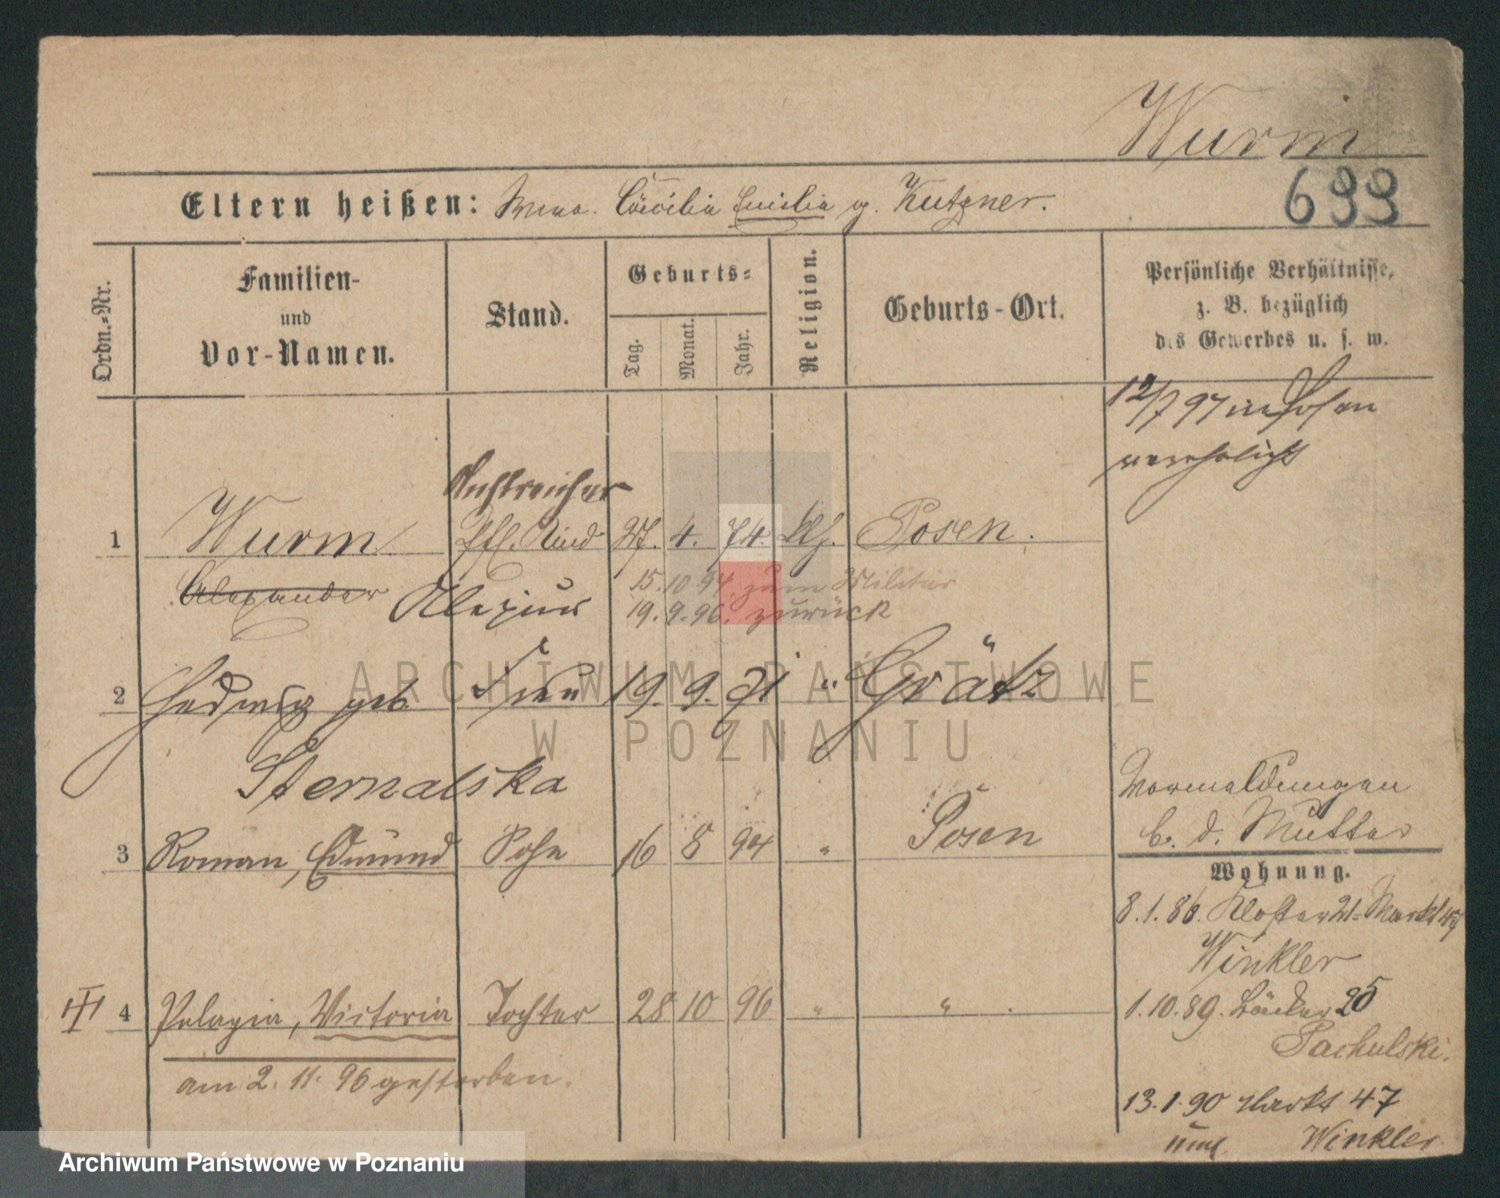 Wurm
699
Eltern heißen: Cäcilia Emilia g. Kutzner.
Ordn.-Nr.
Familien-
und
Vor-Namen.
Stand.
Geburts-
Tag.
Monat.
Jahr.
Religion.
Geburts-Ort.
Persönliche Verhältnisse,
z. B. bezüglich
des Gewerbes u. s. w.
12/7 97 in Posen
verehelicht
Anstreicher
1 Wurm 27. 4. 74. Posen.
Alexander Alexius
15. 10 94. zum Militär
19. 9. 96. zurück
2 Hedwig geb. Frau 19. 9. 71 " Grätz
Sternalska
3 Roman, Edmund Sohn 16 8 94 " Posen
b. d. Mutter
Wohnung.
8. 1. 86. Kloster 21. Markt 47
Winkler
4 Pelagia, Victoria Tochter 28 10 96 " "
1. 10. 89. Bäcker 25
Pachulski.
am 2. 11. 96 gestorben.
13. 1. 90 Markt 47
Winkler
ARCHIWUM PAŃSTWOWE
W POZNANIU
Archiwum Państwowe w Poznaniu